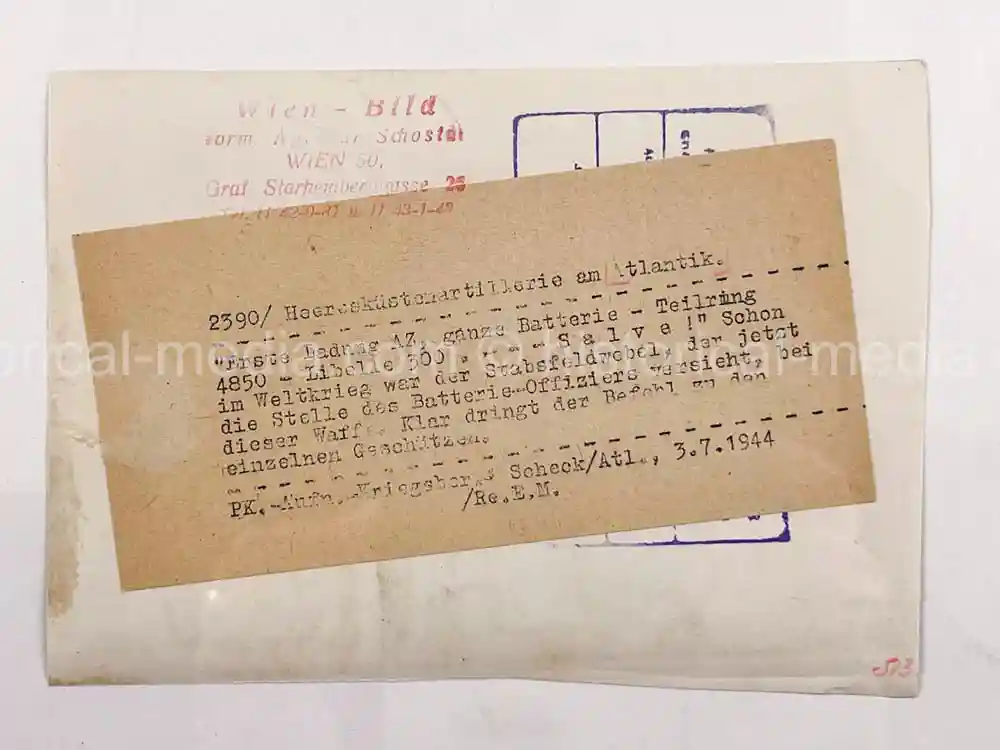 Wien - Bild
vorm. Schostal
WIEN 50,
Graf Starhemberggasse 26
2390/ Heeresküstenartillerie am Atlantik.
"Erste Ladung AZ, ganze Batterie - Teilring
4850 - Libelle 300 . - - S a l v e !" Schon
im Weltkrieg war der Stabsfeldwebel, der jetzt
die Stelle des Batterie-Offiziers versieht, bei
dieser Waffe. Klar dringt der Befehl zu den
einzelnen Geschützen.
PK.-Aufn.-Kriegsber. Scheck/Atl., 3.7.1944
/Re.E.M.
513